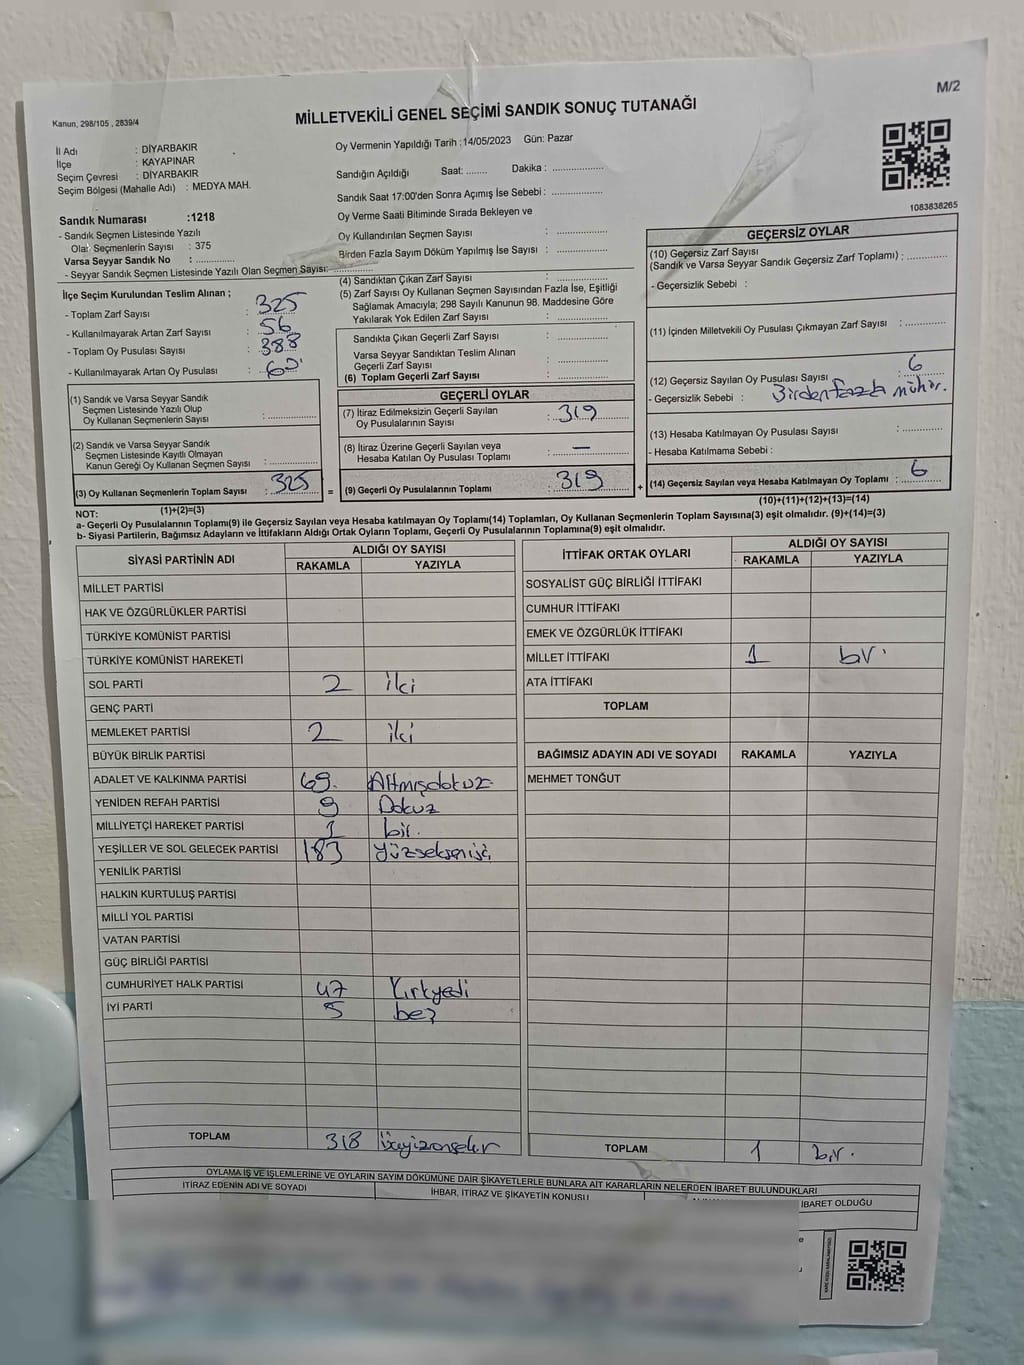 M/2
Kanun, 298/105 , 2839/4
MİLLETVEKİLİ GENEL SEÇİMİ SANDIK SONUÇ TUTANAĞI
İl Adı : DİYARBAKIR
İlçe : KAYAPINAR
Seçim Çevresi : DİYARBAKIR
Seçim Bölgesi (Mahalle Adı) : MEDYA MAH.
Sandık Numarası :1218
- Sandık Seçmen Listesinde Yazılı
Olan Seçmenlerin Sayısı : 375
Varsa Seyyar Sandık No : ..............
- Seyyar Sandık Seçmen Listesinde Yazılı Olan Seçmen Sayısı: ..............
Oy Vermenin Yapıldığı Tarih :14/05/2023 Gün: Pazar
Sandığın Açıldığı Saat: ........ Dakika : ..................
Sandık Saat 17:00'den Sonra Açımış İse Sebebi : ..................
Oy Verme Saati Bitiminde Sırada Bekleyen ve
Oy Kullandırılan Seçmen Sayısı : ..................
Birden Fazla Sayım Döküm Yapılmış İse Sayısı : ..................
1083838265
İlçe Seçim Kurulundan Teslim Alınan ;
- Toplam Zarf Sayısı : 325
- Kullanılmayarak Artan Zarf Sayısı : 56
- Toplam Oy Pusulası Sayısı : 388
- Kullanılmayarak Artan Oy Pusulası :
(1) Sandık ve Varsa Seyyar Sandık
Seçmen Listesinde Yazılı Olup
Oy Kullanan Seçmenlerin Sayısı : ..............
(2) Sandık ve Varsa Seyyar Sandık
Seçmen Listesinde Kayıtlı Olmayan
Kanun Gereği Oy Kullanan Seçmen Sayısı : ..............
(3) Oy Kullanan Seçmenlerin Toplam Sayısı : 325
(1)+(2)=(3)
(4) Sandıktan Çıkan Zarf Sayısı : ..................
(5) Zarf Sayısı Oy Kullanan Seçmen Sayısından Fazla İse, Eşitliği
Sağlamak Amacıyla; 298 Sayılı Kanunun 98. Maddesine Göre
Yakılarak Yok Edilen Zarf Sayısı : ..................
Sandıkta Çıkan Geçerli Zarf Sayısı : ..................
Varsa Seyyar Sandıktan Teslim Alınan
Geçerli Zarf Sayısı : ..................
(6) Toplam Geçerli Zarf Sayısı : ..................
GEÇERLİ OYLAR
(7) İtiraz Edilmeksizin Geçerli Sayılan
Oy Pusulalarının Sayısı : 319
(8) İtiraz Üzerine Geçerli Sayılan veya
Hesaba Katılan Oy Pusulası Toplamı : —
= (9) Geçerli Oy Pusulalarının Toplamı : 319 +
GEÇERSİZ OYLAR
(10) Geçersiz Zarf Sayısı
(Sandık ve Varsa Seyyar Sandık Geçersiz Zarf Toplamı) : ..............
- Geçersizlik Sebebi :
(11) İçinden Milletvekili Oy Pusulası Çıkmayan Zarf Sayısı : ..............
(12) Geçersiz Sayılan Oy Pusulası Sayısı : 6
- Geçersizlik Sebebi : Birden fazla mühür.
(13) Hesaba Katılmayan Oy Pusulası Sayısı : ..............
- Hesaba Katılmama Sebebi :
(14) Geçersiz Sayılan veya Hesaba Katılmayan Oy Toplamı : 6
(10)+(11)+(12)+(13)=(14)
NOT:
a- Geçerli Oy Pusulalarının Toplamı(9) ile Geçersiz Sayılan veya Hesaba katılmayan Oy Toplamı(14) Toplamları, Oy Kullanan Seçmenlerin Toplam Sayısına(3) eşit olmalıdır. (9)+(14)=(3)
b- Siyasi Partilerin, Bağımsız Adayların ve İttifakların Aldığı Ortak Oyların Toplamı, Geçerli Oy Pusulalarının Toplamına(9) eşit olmalıdır.
SİYASİ PARTİNİN ADI ALDIĞI OY SAYISI
RAKAMLA YAZIYLA
MİLLET PARTİSİ
HAK VE ÖZGÜRLÜKLER PARTİSİ
TÜRKİYE KOMÜNİST PARTİSİ
TÜRKİYE KOMÜNİST HAREKETİ
SOL PARTİ 2 iki
GENÇ PARTİ
MEMLEKET PARTİSİ 2 iki
BÜYÜK BİRLİK PARTİSİ
ADALET VE KALKINMA PARTİSİ 69. Altmışdokuz
YENİDEN REFAH PARTİSİ 9 Dokuz
MİLLİYETÇİ HAREKET PARTİSİ 1 bir.
YEŞİLLER VE SOL GELECEK PARTİSİ 183 Yüzseksenüç
YENİLİK PARTİSİ
HALKIN KURTULUŞ PARTİSİ
MİLLİ YOL PARTİSİ
VATAN PARTİSİ
GÜÇ BİRLİĞİ PARTİSİ
CUMHURİYET HALK PARTİSİ 47 Kırkyedi
İYİ PARTİ 5 beş
TOPLAM 318 üçyüzonsekiz
İTTİFAK ORTAK OYLARI ALDIĞI OY SAYISI
RAKAMLA YAZIYLA
SOSYALİST GÜÇ BİRLİĞİ İTTİFAKI
CUMHUR İTTİFAKI
EMEK VE ÖZGÜRLÜK İTTİFAKI
MİLLET İTTİFAKI 1 bir.
ATA İTTİFAKI
TOPLAM
BAĞIMSIZ ADAYIN ADI VE SOYADI RAKAMLA YAZIYLA
MEHMET TONĞUT
TOPLAM 1 bir.
OYLAMA İŞ VE İŞLEMLERİNE VE OYLARIN SAYIM DÖKÜMÜNE DAİR ŞİKAYETLERLE BUNLARA AİT KARARLARIN NELERDEN İBARET BULUNDUKLARI
İTİRAZ EDENİN ADI VE SOYADI İHBAR, İTİRAZ VE ŞİKAYETİN KONUSU İBARET OLDUĞU